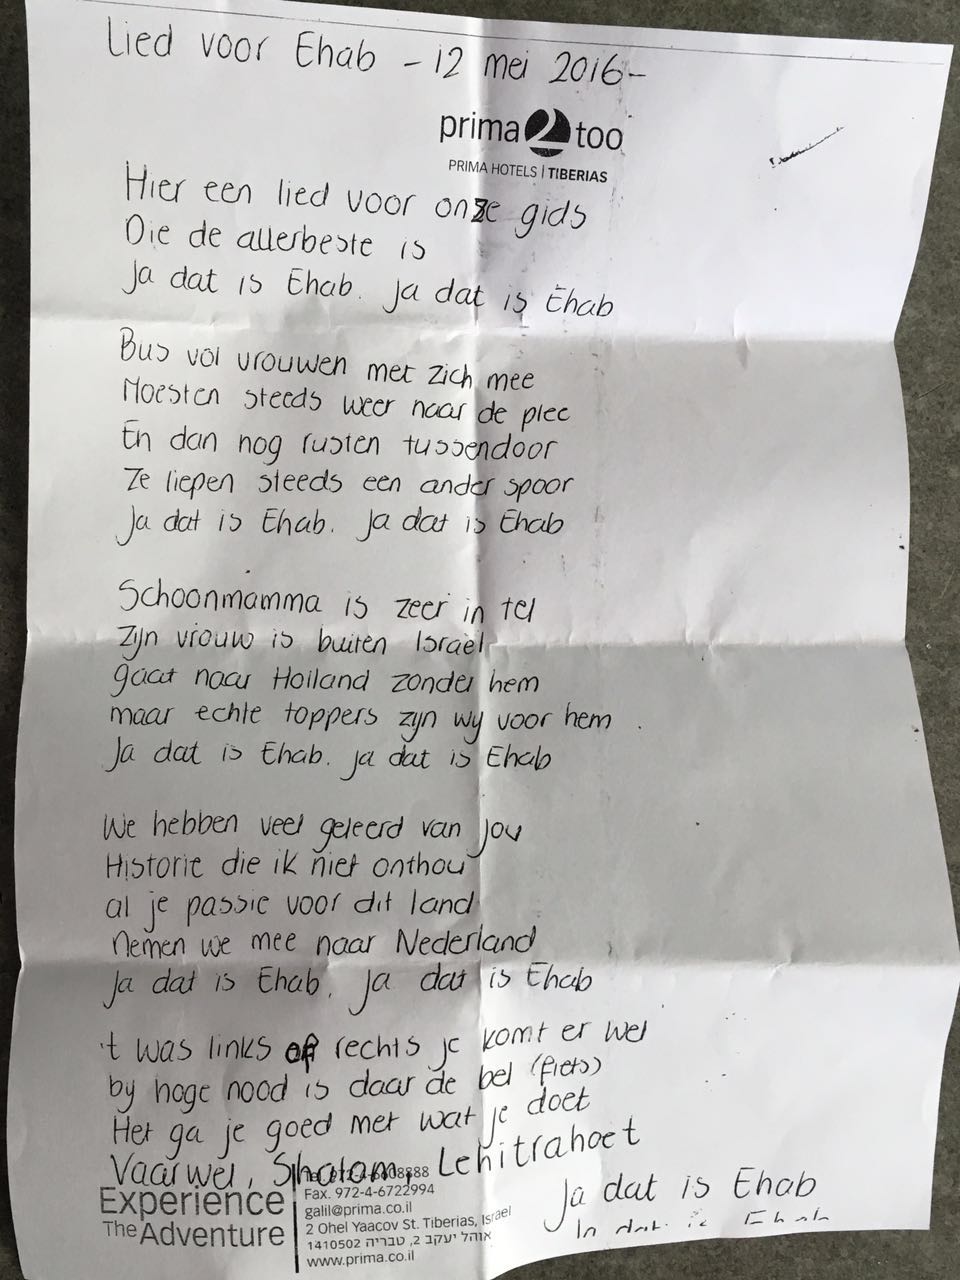 Lied voor Ehab - 12 mei 2016-
prima 2 too
PRIMA HOTELS | TIBERIAS
Hier een lied voor onze gids
Die de allerbeste is
Ja dat is Ehab. Ja dat is Ehab
Bus vol vrouwen met zich mee
Moesten steeds weer naar de plee
En dan nog rusten tussendoor
Ze liepen steeds een ander spoor
Ja dat is Ehab. Ja dat is Ehab
Schoonmamma is zeer in tel
Zijn vrouw is buiten Israël
gaat naar Holland zonder hem
maar echte toppers zijn wy voor hem
Ja dat is Ehab. Ja dat is Ehab
We hebben veel geleerd van jou
Historie die ik niet onthou
al je passie voor dit land
Nemen we mee naar Nederland
Ja dat is Ehab, Ja dat is Ehab
't was links of rechts je komt er wel
by hoge nood is daar de bel (fiets)
Het ga je goed met wat je doet
Vaarwel, Shalom, Lehitrahoet
Ja dat is Ehab
Ja dat is Ehab
Experience
The Adventure
Tel. 972-4-6608888
Fax. 972-4-6722994
galil@prima.co.il
2 Ohel Yaacov St. Tiberias, Israel
אוהל יעקב 2, טבריה 1410502
www.prima.co.il